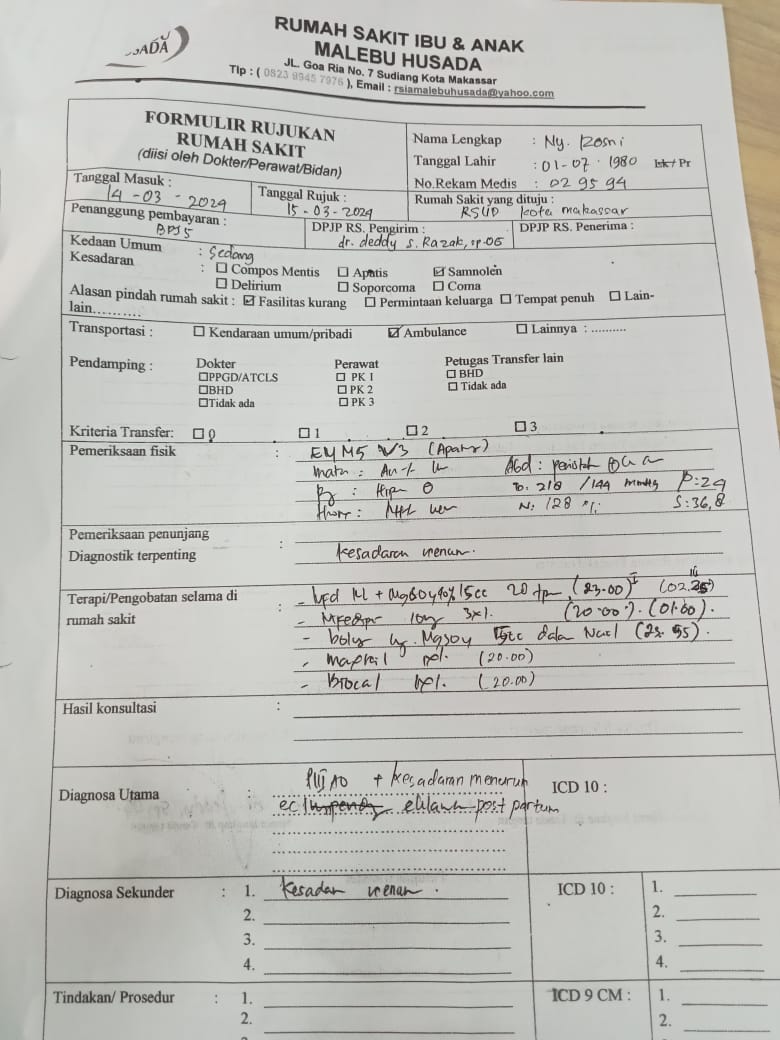 RUMAH SAKIT IBU & ANAK
MALEBU HUSADA
JL. Goa Ria No. 7 Sudiang Kota Makassar
Tlp : ( 0823 9945 7976 ), Email : rsiamalebuhusada@yahoo.com
FORMULIR RUJUKAN
RUMAH SAKIT
(diisi oleh Dokter/Perawat/Bidan)
Nama Lengkap : Ny. Rosni
Tanggal Lahir : 01-07-1980 Lk/Pr
No.Rekam Medis : 02 95 94
Tanggal Masuk : 14-03-2024
Tanggal Rujuk : 15-03-2024
Rumah Sakit yang dituju : RSUD kota makassar
Penanggung pembayaran : BPJS
DPJP RS. Pengirim : dr. deddy S. Razak, sp.OG
DPJP RS. Penerima :
Kedaan Umum : Sedang
Kesadaran : ☐ Compos Mentis ☐ Apatis ☑ Samnolen
☐ Delirium ☐ Soporcoma ☐ Coma
Alasan pindah rumah sakit : ☑ Fasilitas kurang ☐ Permintaan keluarga ☐ Tempat penuh ☐ Lain-
lain..........
Transportasi : ☐ Kendaraan umum/pribadi ☑ Ambulance ☐ Lainnya : ..........
Pendamping : Dokter Perawat Petugas Transfer lain
☐PPGD/ATCLS ☐ PK 1 ☐ BHD
☐BHD ☐ PK 2 ☐ Tidak ada
☐Tidak ada ☐ PK 3
Kriteria Transfer: ☐ 0 ☐ 1 ☐ 2 ☐ 3
Pemeriksaan fisik : E4 M5 V3 (Apatis)
mata : An -/- Abd : peristaltik ⊕
TD: 218 /144 mmHg P: 24
N: 128 x/i S: 36,8
Pemeriksaan penunjang
Diagnostik terpenting : kesadaran menurun.
Terapi/Pengobatan selama di
rumah sakit : - Ivfd RL + MgSO4 40% 15cc 20 tpm (23.00)
- Nifedipin 10mg 3x1. (20.00). (01.00).
- bolus MgSO4 dalam Nacl
- (20.00)
- (20.00)
Hasil konsultasi :
Diagnosa Utama : PIII A0 + Kesadaran menurun
ec post partum
ICD 10 :
Diagnosa Sekunder : 1. Kesadaran menurun. ICD 10 : 1.
2. 2.
3. 3.
4. 4.
Tindakan/ Prosedur : 1. ICD 9 CM : 1.
2. 2.